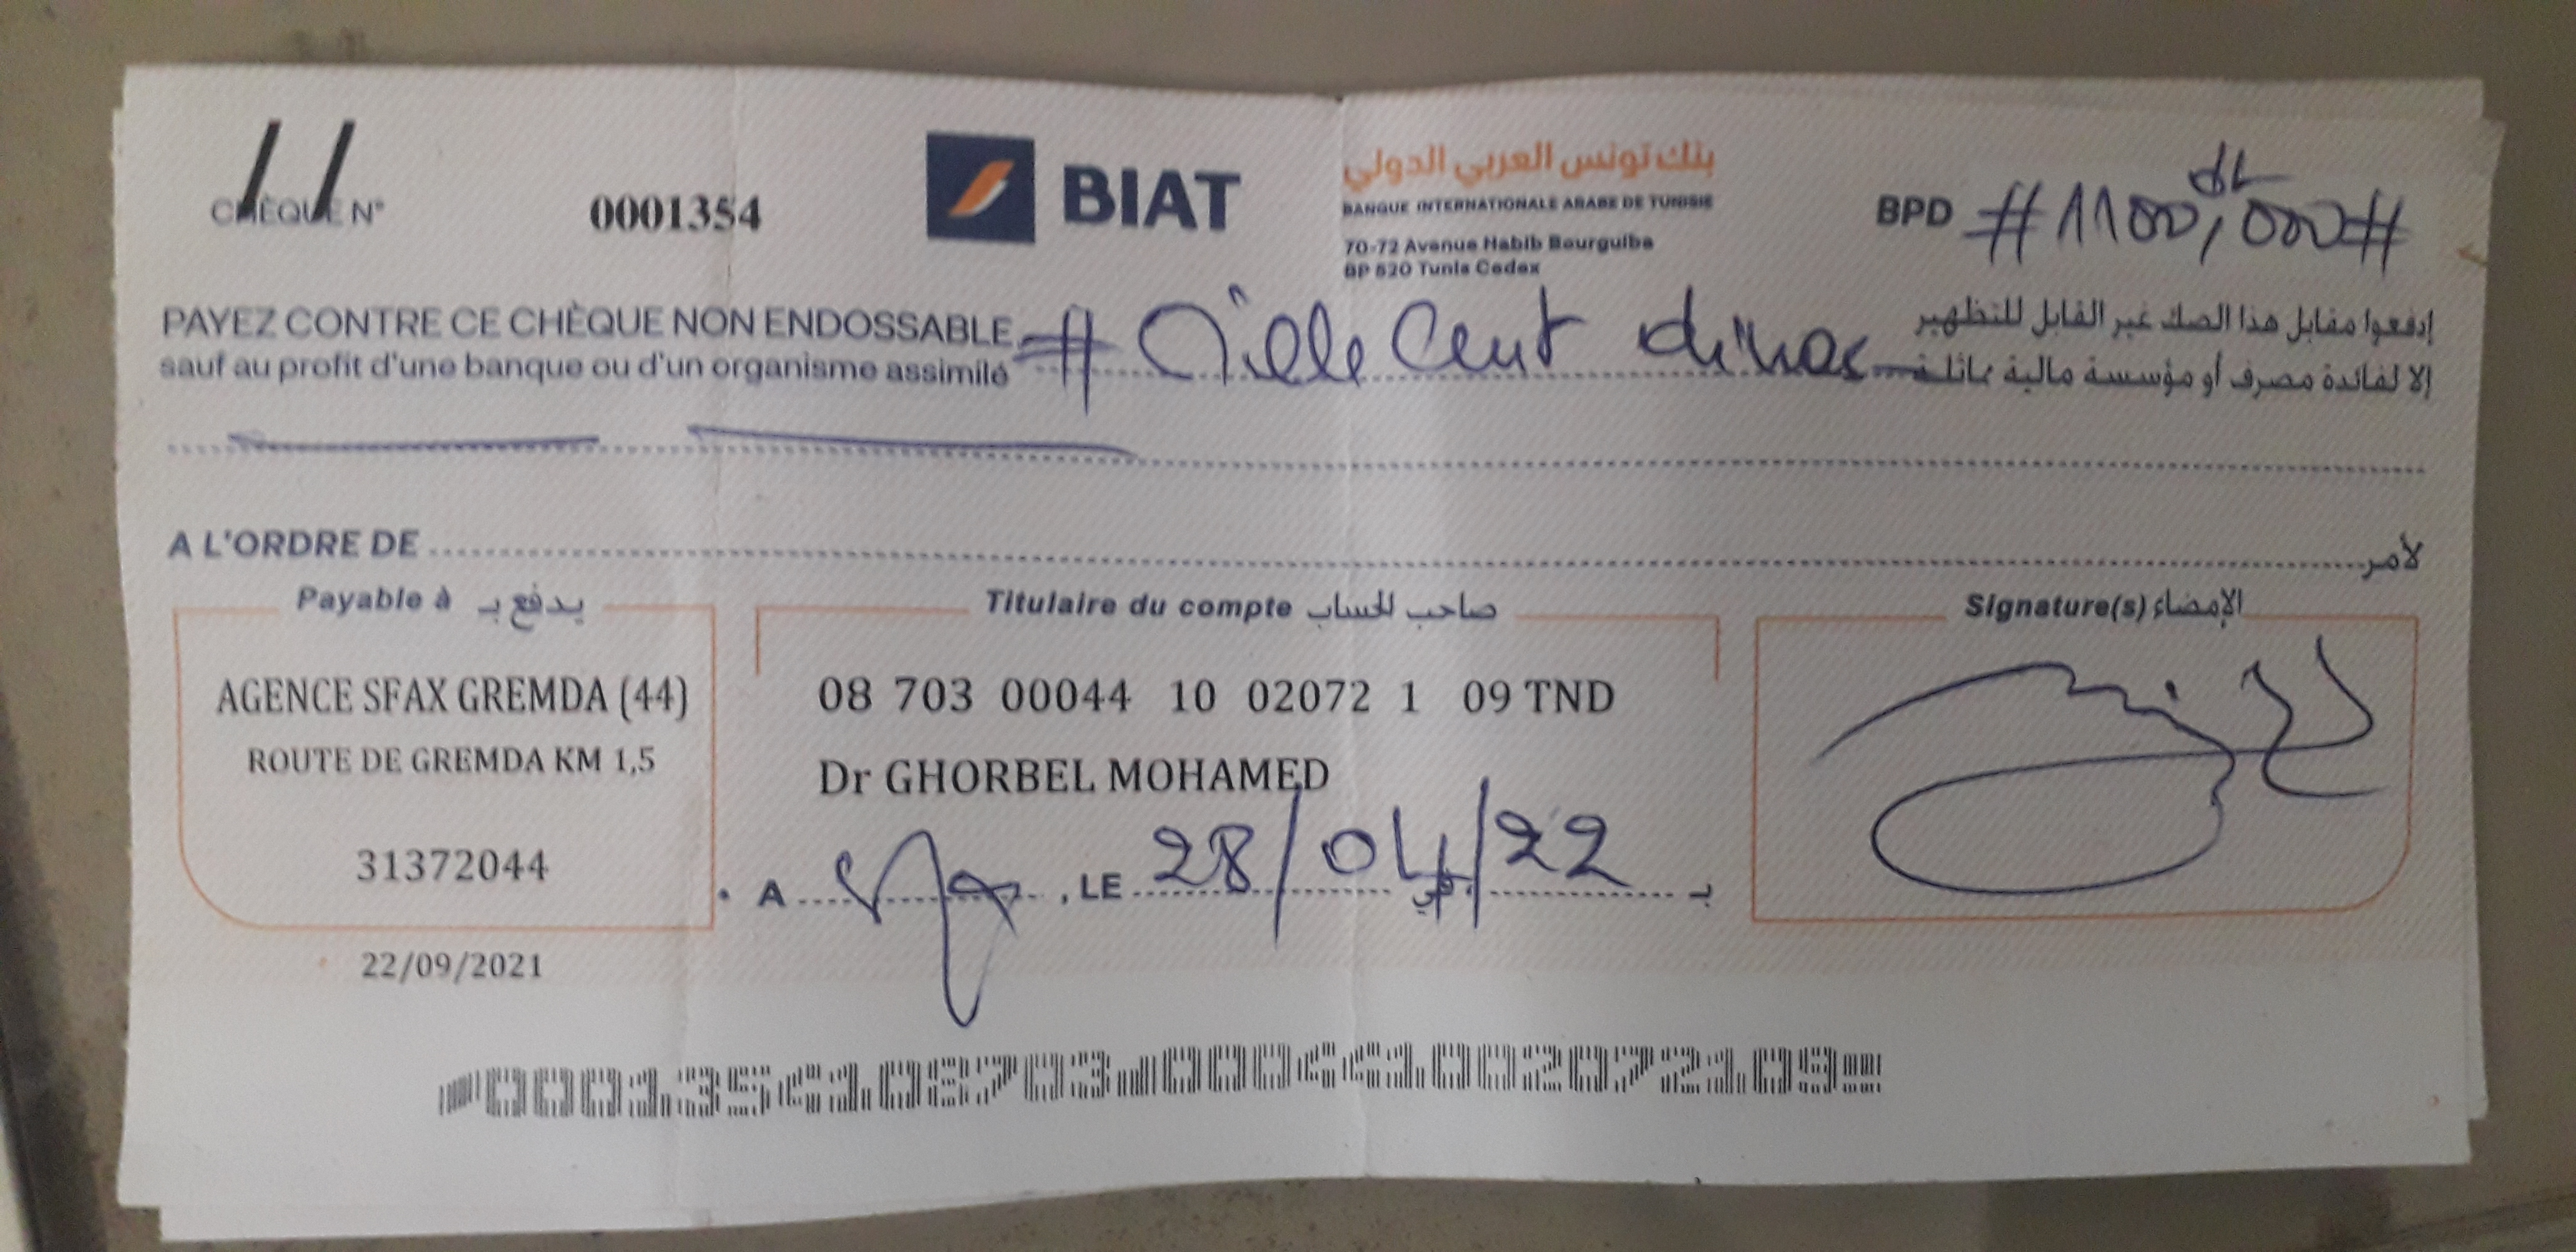 CHÈQUE N° 0001354
BIAT
بنك تونس العربي الدولي
BANQUE INTERNATIONALE ARABE DE TUNISIE
70-72 Avenue Habib Bourguiba
BP 520 Tunis Cedex
BPD #1100,000#
dt
PAYEZ CONTRE CE CHÈQUE NON ENDOSSABLE
sauf au profit d'une banque ou d'un organisme assimilé
# Mille Cent dinars
إدفعوا مقابل هذا الصك غير القابل للتظهير
إلا لفائدة مصرف أو مؤسسة مالية مماثلة
A L'ORDRE DE لأمر
Payable à يدفع بـ
AGENCE SFAX GREMDA (44)
ROUTE DE GREMDA KM 1,5
31372044
22/09/2021
Titulaire du compte صاحب الحساب
08 703 00044 10 02072 1 09 TND
Dr GHORBEL MOHAMED
A Sfax, LE 28/04/22 في بـ
Signature(s) الإمضاء
0001354108703000441002072109